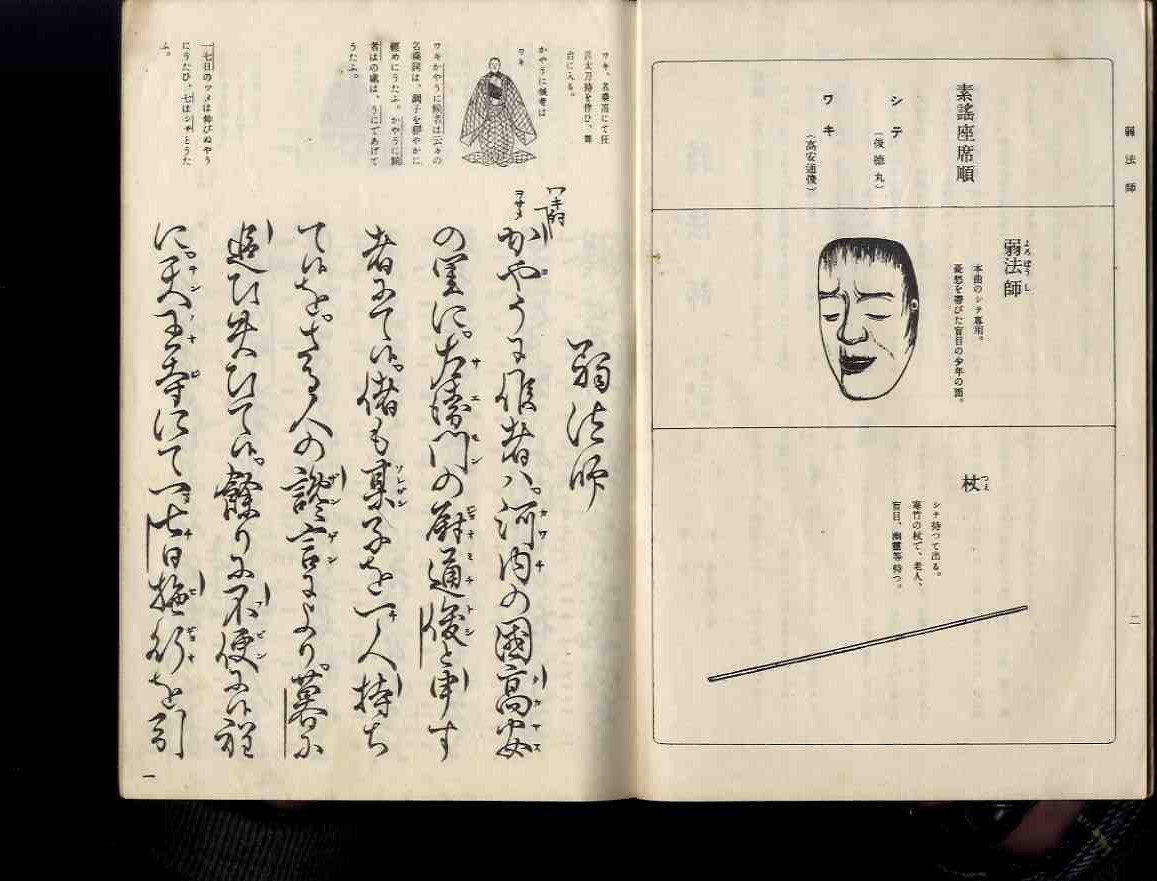 弱法師
二
素謡座席順
シテ
(俊徳丸)
ワキ
(高安通俊)
弱法師
よろぼうし
本曲のシテ専用。
憂愁を帯びた盲目の少年の面。
杖
つえ
シテ持つて出る。
寒竹の杖で、老人、
盲目、幽霊等持つ。
ワキ、名乗笛にて狂
言太刀持を伴ひ、舞
台に入る。
かやうに候者は
ワキ
ワキかやうに候者は云々の
名乗詞は、調子を穏やかに
うたふ。
一七日のツメは伸びぬやう
弱法師
ワキ詞
かやうに候者ハ。河内の國高安
の里に。左衛門の尉通俊と申す
者にて候。偖も某子を一人持ち
て候を。さる人の讒言により。暮に
追ひ失ひて候。餘りに不便に候程
に。天王寺にて一七日施行を引
一